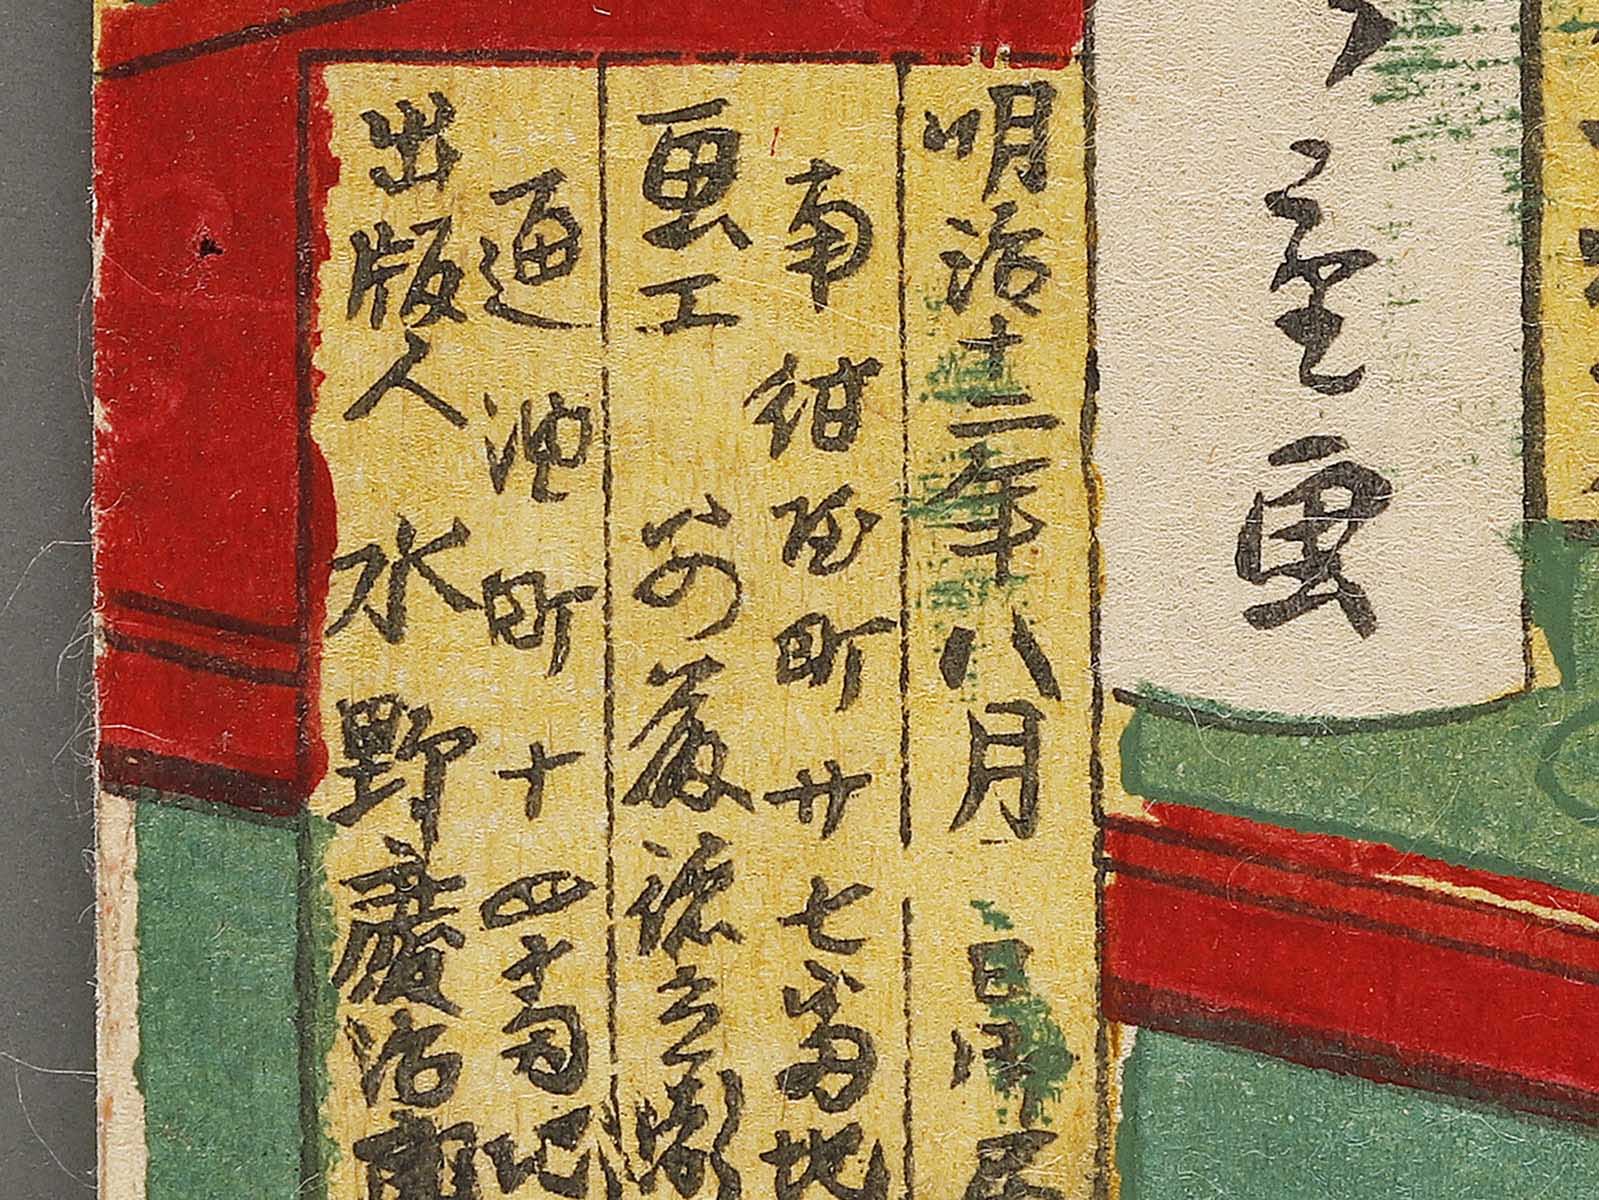 重画
明治十二年八月 日御届
南紺屋町廿七番地
画工 安藤徳兵衛
通油町十四番地
出版人 水野慶治郎